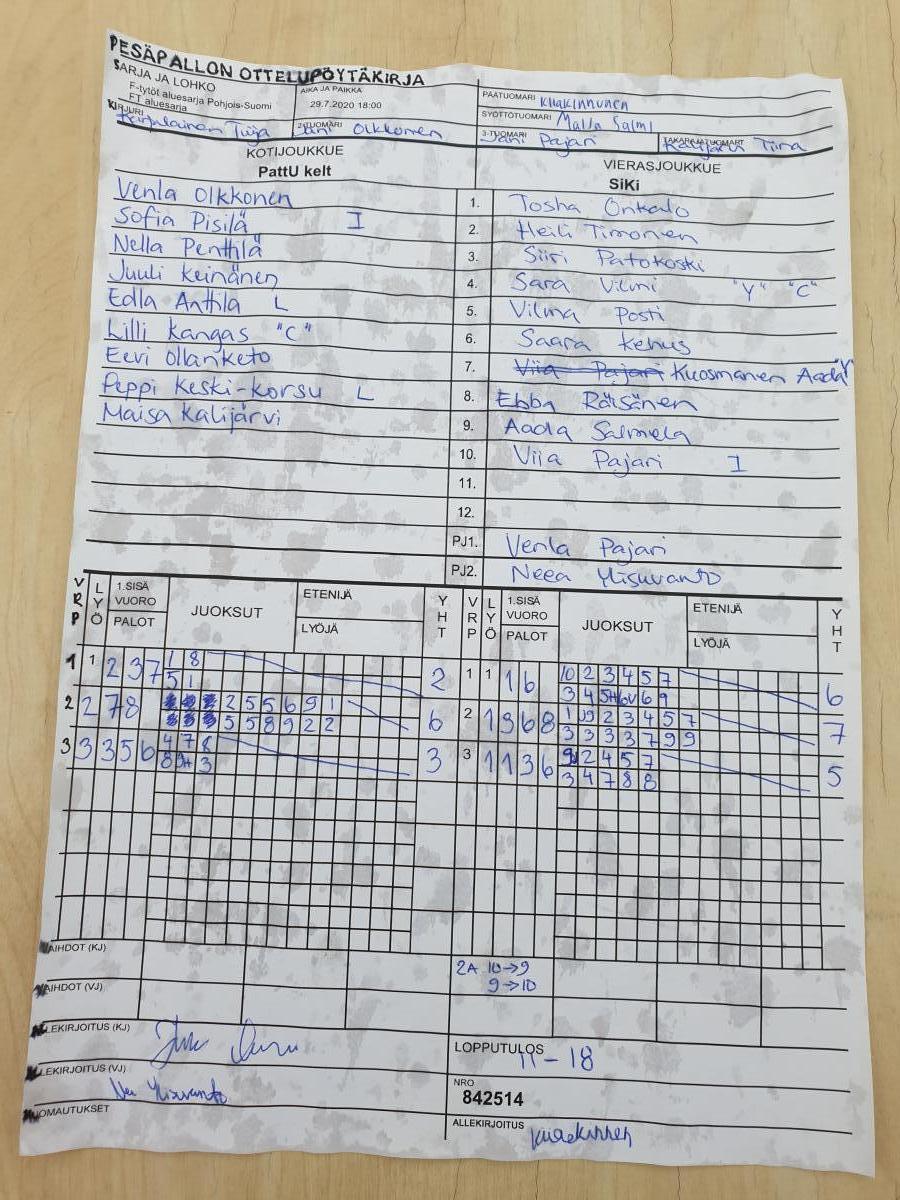 PESÄPALLON OTTELUPÖYTÄKIRJA
SARJA JA LOHKO
F-tytöt aluesarja Pohjois-Suomi
FT aluesarja
AIKA JA PAIKKA
29.7.2020 18:00
PÄÄTUOMARI
SYÖTTÖTUOMARI Malla Salmi
KIRJURI Karjalainen Tuija
2-TUOMARI Jani Olkkonen
3-TUOMARI Jani Pajari
TAKARAJATUOMARIT Kalijärvi Tiina
KOTIJOUKKUE
PattU kelt
VIERASJOUKKUE
SiKi
Venla Olkkonen 1. Tosha Onkalo
Sofia Pisilä I 2. Heili Timonen
Nella Penttilä 3. Siiri Patokoski
Juuli Keinänen 4. Sara Vilmi "Y" "C"
Edla Anttila L 5. Vilma Posti
Lilli Kangas "C" 6. Saara Kehus
Eevi Ollanketo 7. Viia Pajari Kuosmanen Aada
Peppi Keski-Korsu L 8. Ebba Räisänen
Maisa Kalijärvi 9. Aada Salmela
10. Viia Pajari I
11.
12.
PJ1. Venla Pajari
PJ2. Neea Ylisuvanto
VRP LYÖ 1.SISÄ VUORO PALOT JUOKSUT ETENIJÄ LYÖJÄ YHT VRP LYÖ 1.SISÄ VUORO PALOT JUOKSUT ETENIJÄ LYÖJÄ YHT
1 1 2 3 7 1 8 2 1 1 1 6 10 2 3 4 5 7 6
5 1 3 4 5H 6V 6 9
2 2 7 8 2 5 5 6 9 1 6 2 1 3 6 8 1 10 2 3 4 5 7 7
5 5 8 9 2 2 3 3 3 3 7 9 9
3 3 3 5 6 4 7 8 3 3 1 1 3 6 9 2 4 5 7 5
8 9H 3 3 4 7 8 8
VAIHDOT (KJ) 2A 10→9
9→10
VAIHDOT (VJ)
ALLEKIRJOITUS (KJ)
LOPPUTULOS 11-18
ALLEKIRJOITUS (VJ) Nea Ylisuvanto
NRO
842514
HUOMAUTUKSET
ALLEKIRJOITUS